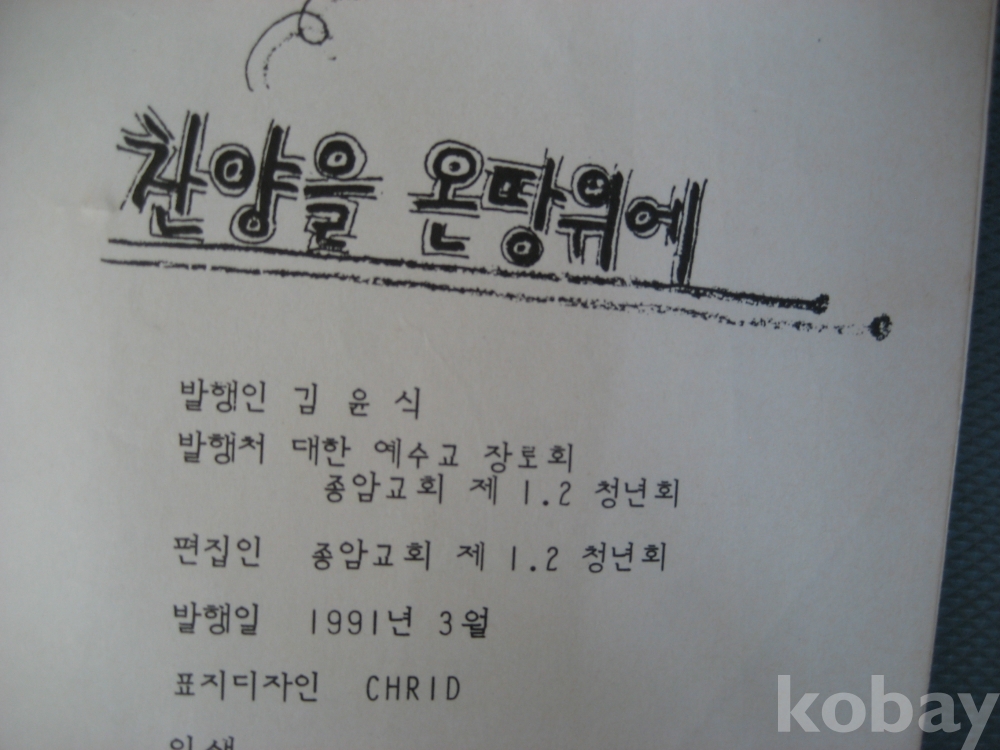 찬양을 온땅위에
발행인 김 윤 식
발행처 대한 예수교 장로회
종암교회 제 1.2 청년회
편집인 종암교회 제 1.2 청년회
발행일 1991년 3월
표지디자인 CHRID
인쇄
kobay